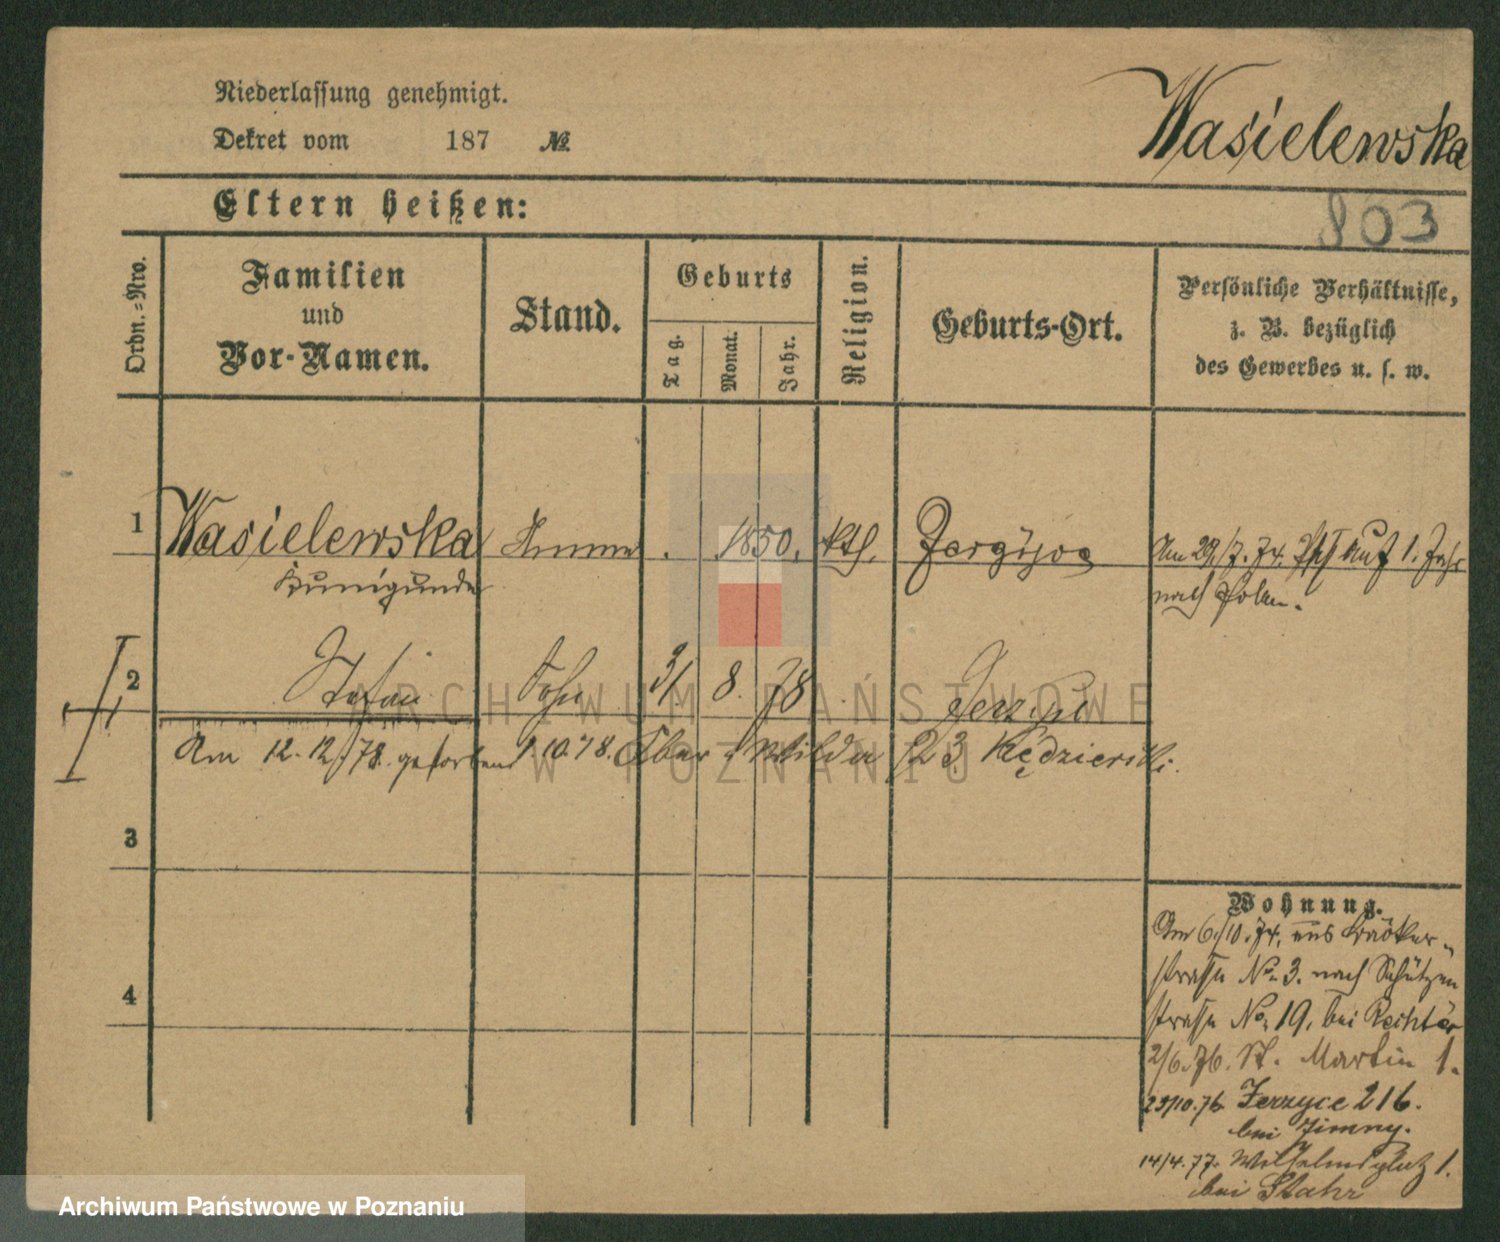 Niederlassung genehmigt.
Dekret vom 187 №
Wasielewska
Eltern heißen:
803
Ordn.=Nro.
Familien
und
Vor-Namen.
Stand.
Geburts
Tag.
Monat.
Jahr.
Religion.
Geburts-Ort.
Persönliche Verhältnisse,
z. B. bezüglich
des Gewerbes u. s. w.
1 Wasielewska Amme . 1850. kth. Am 29./7. 74. auf 1. Jahr
Kunigunde nach Polen.
2 Stefan Sohn 31 8. 78 Jerzyce
Am 12. 12. 78. gestorben 1. 10. 78. Ober Wilda 23 Kędzierski.
3
4
Wohnung.
Am 6./10. 74. aus Bäcker-
strasse No. 3. nach Schützen
strasse No. 19. bei Rechter
2/6. 76. St. Martin 1.
23/10. 76. Jerzyce 216.
bei Zimny.
14/4. 77. Wilhelmsplatz 1.
bei Stahr
ARCHIWUM PAŃSTWOWE
W POZNANIU
Archiwum Państwowe w Poznaniu